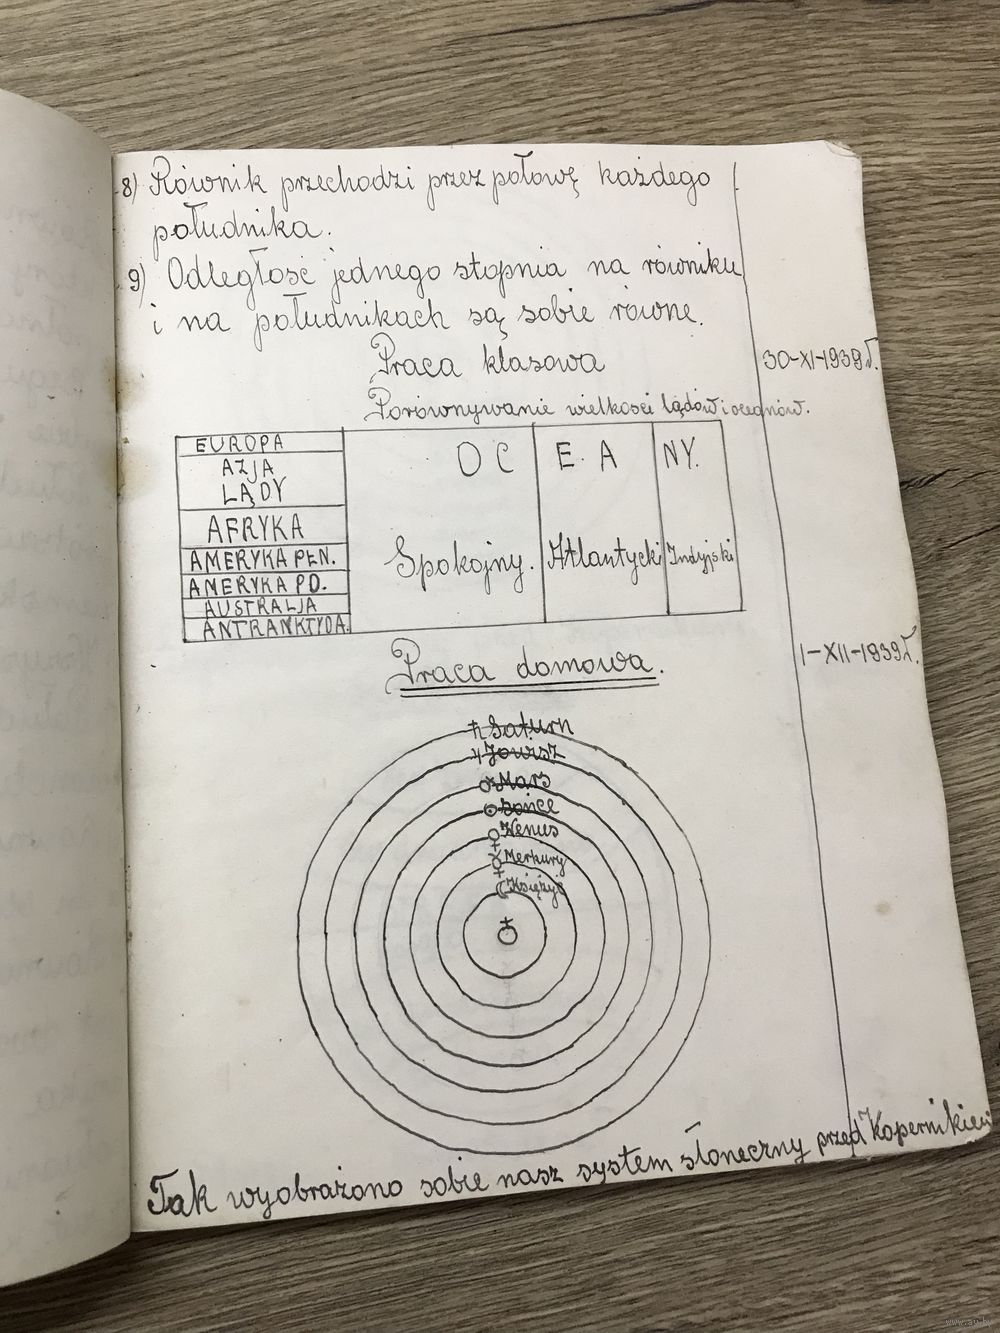 8) Równik przechodzi przez połowę każdego
południka.
9) Odległość jednego stopnia na równiku
i na południkach są sobie równe.
Praca klasowa
30-XI-1939 r.
Porównywanie wielkości lądów i oceanów.
EUROPA
AZJA
LĄDY
AFRYKA
AMERYKA PŁN.
AMERYKA PD.
AUSTRALJA
ANTRANKTYDA.
OC E. A NY.
Spokojny. Atlantycki Indyjski
Praca domowa.
1-XII-1939 r.
♄ Saturn
♃ Jowisz
♂ Mars
☉ Sońce
♀ Wenus
☿ Merkury
☾ Księżyc
♁
Tak wyobrażono sobie nasz system słoneczny przed Kopernikiem
www.ay.by